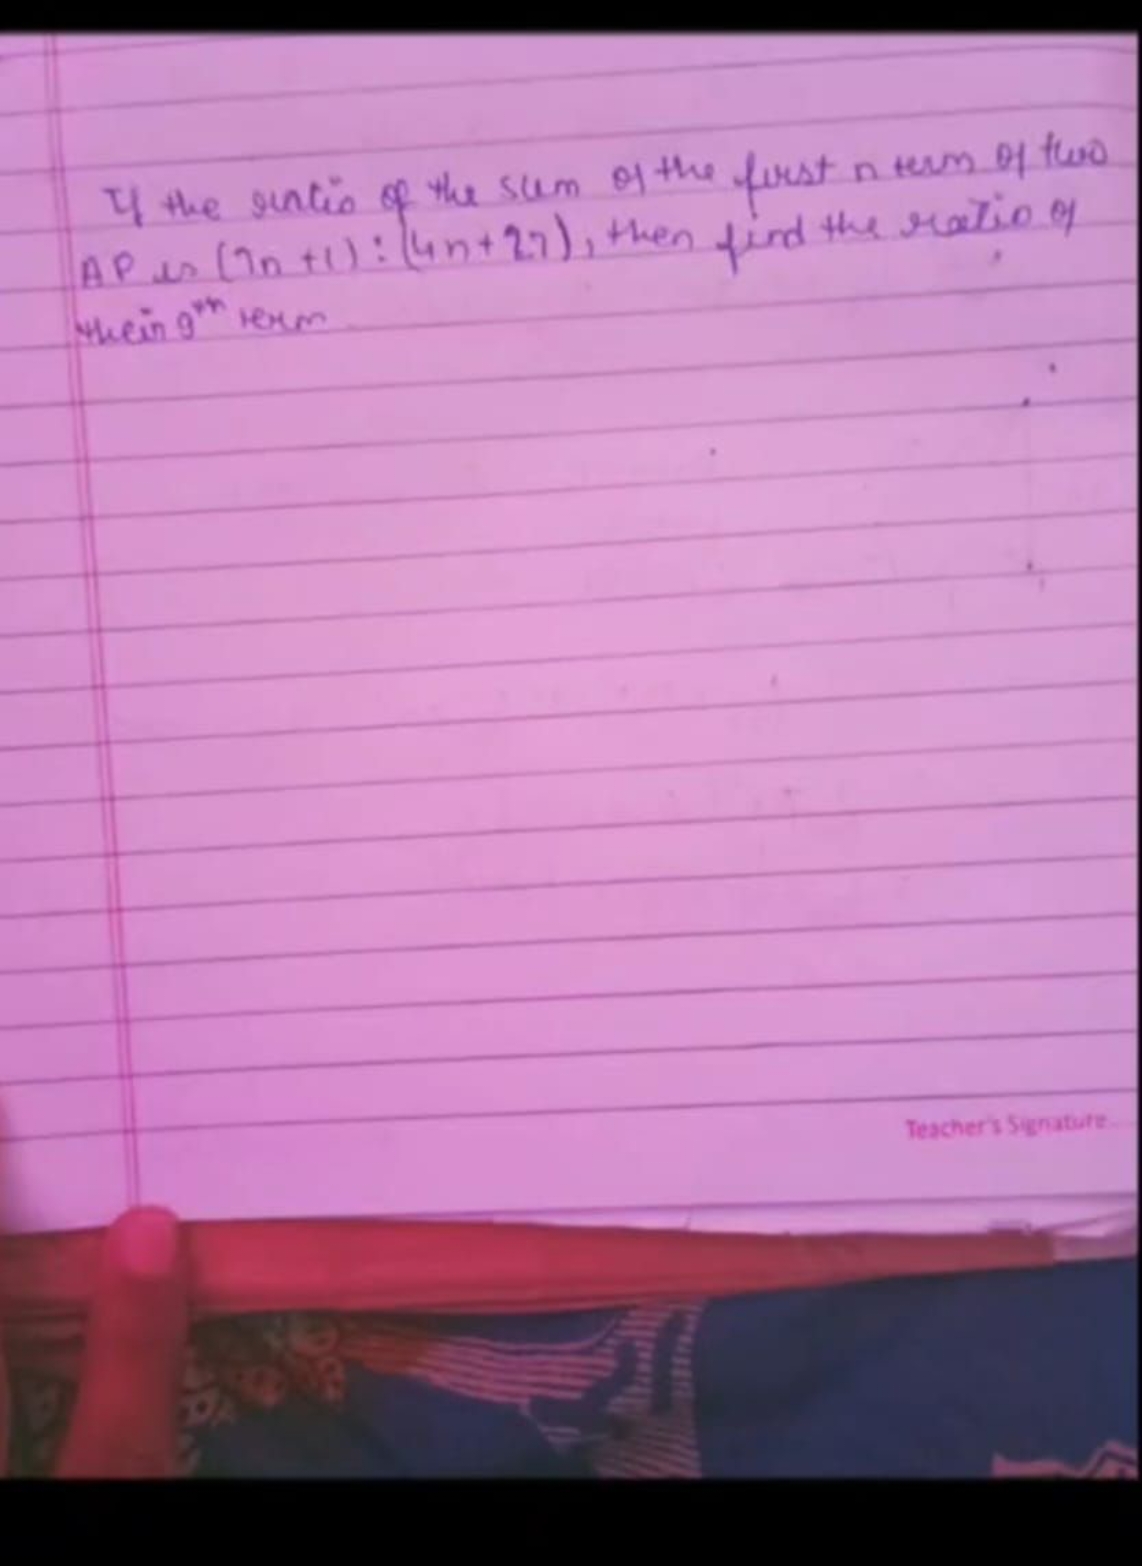 If the ratio of the sum of the first n term of two
AP is (7n+1):(4n+27), then find the ratio of
their 9th term
Teacher's Signature